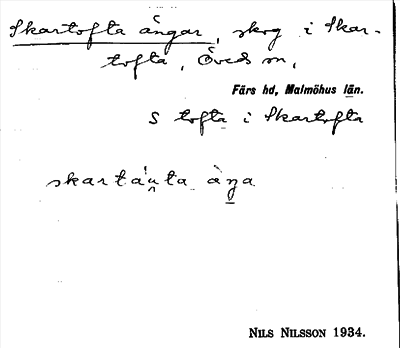 Skartofta ängar, skog i Skar-
tofta, Öveds sn,
Färs hd, Malmöhus län.
S tofta i Skartofta
skartáu̯ta àŋa
NILS NILSSON 1934.